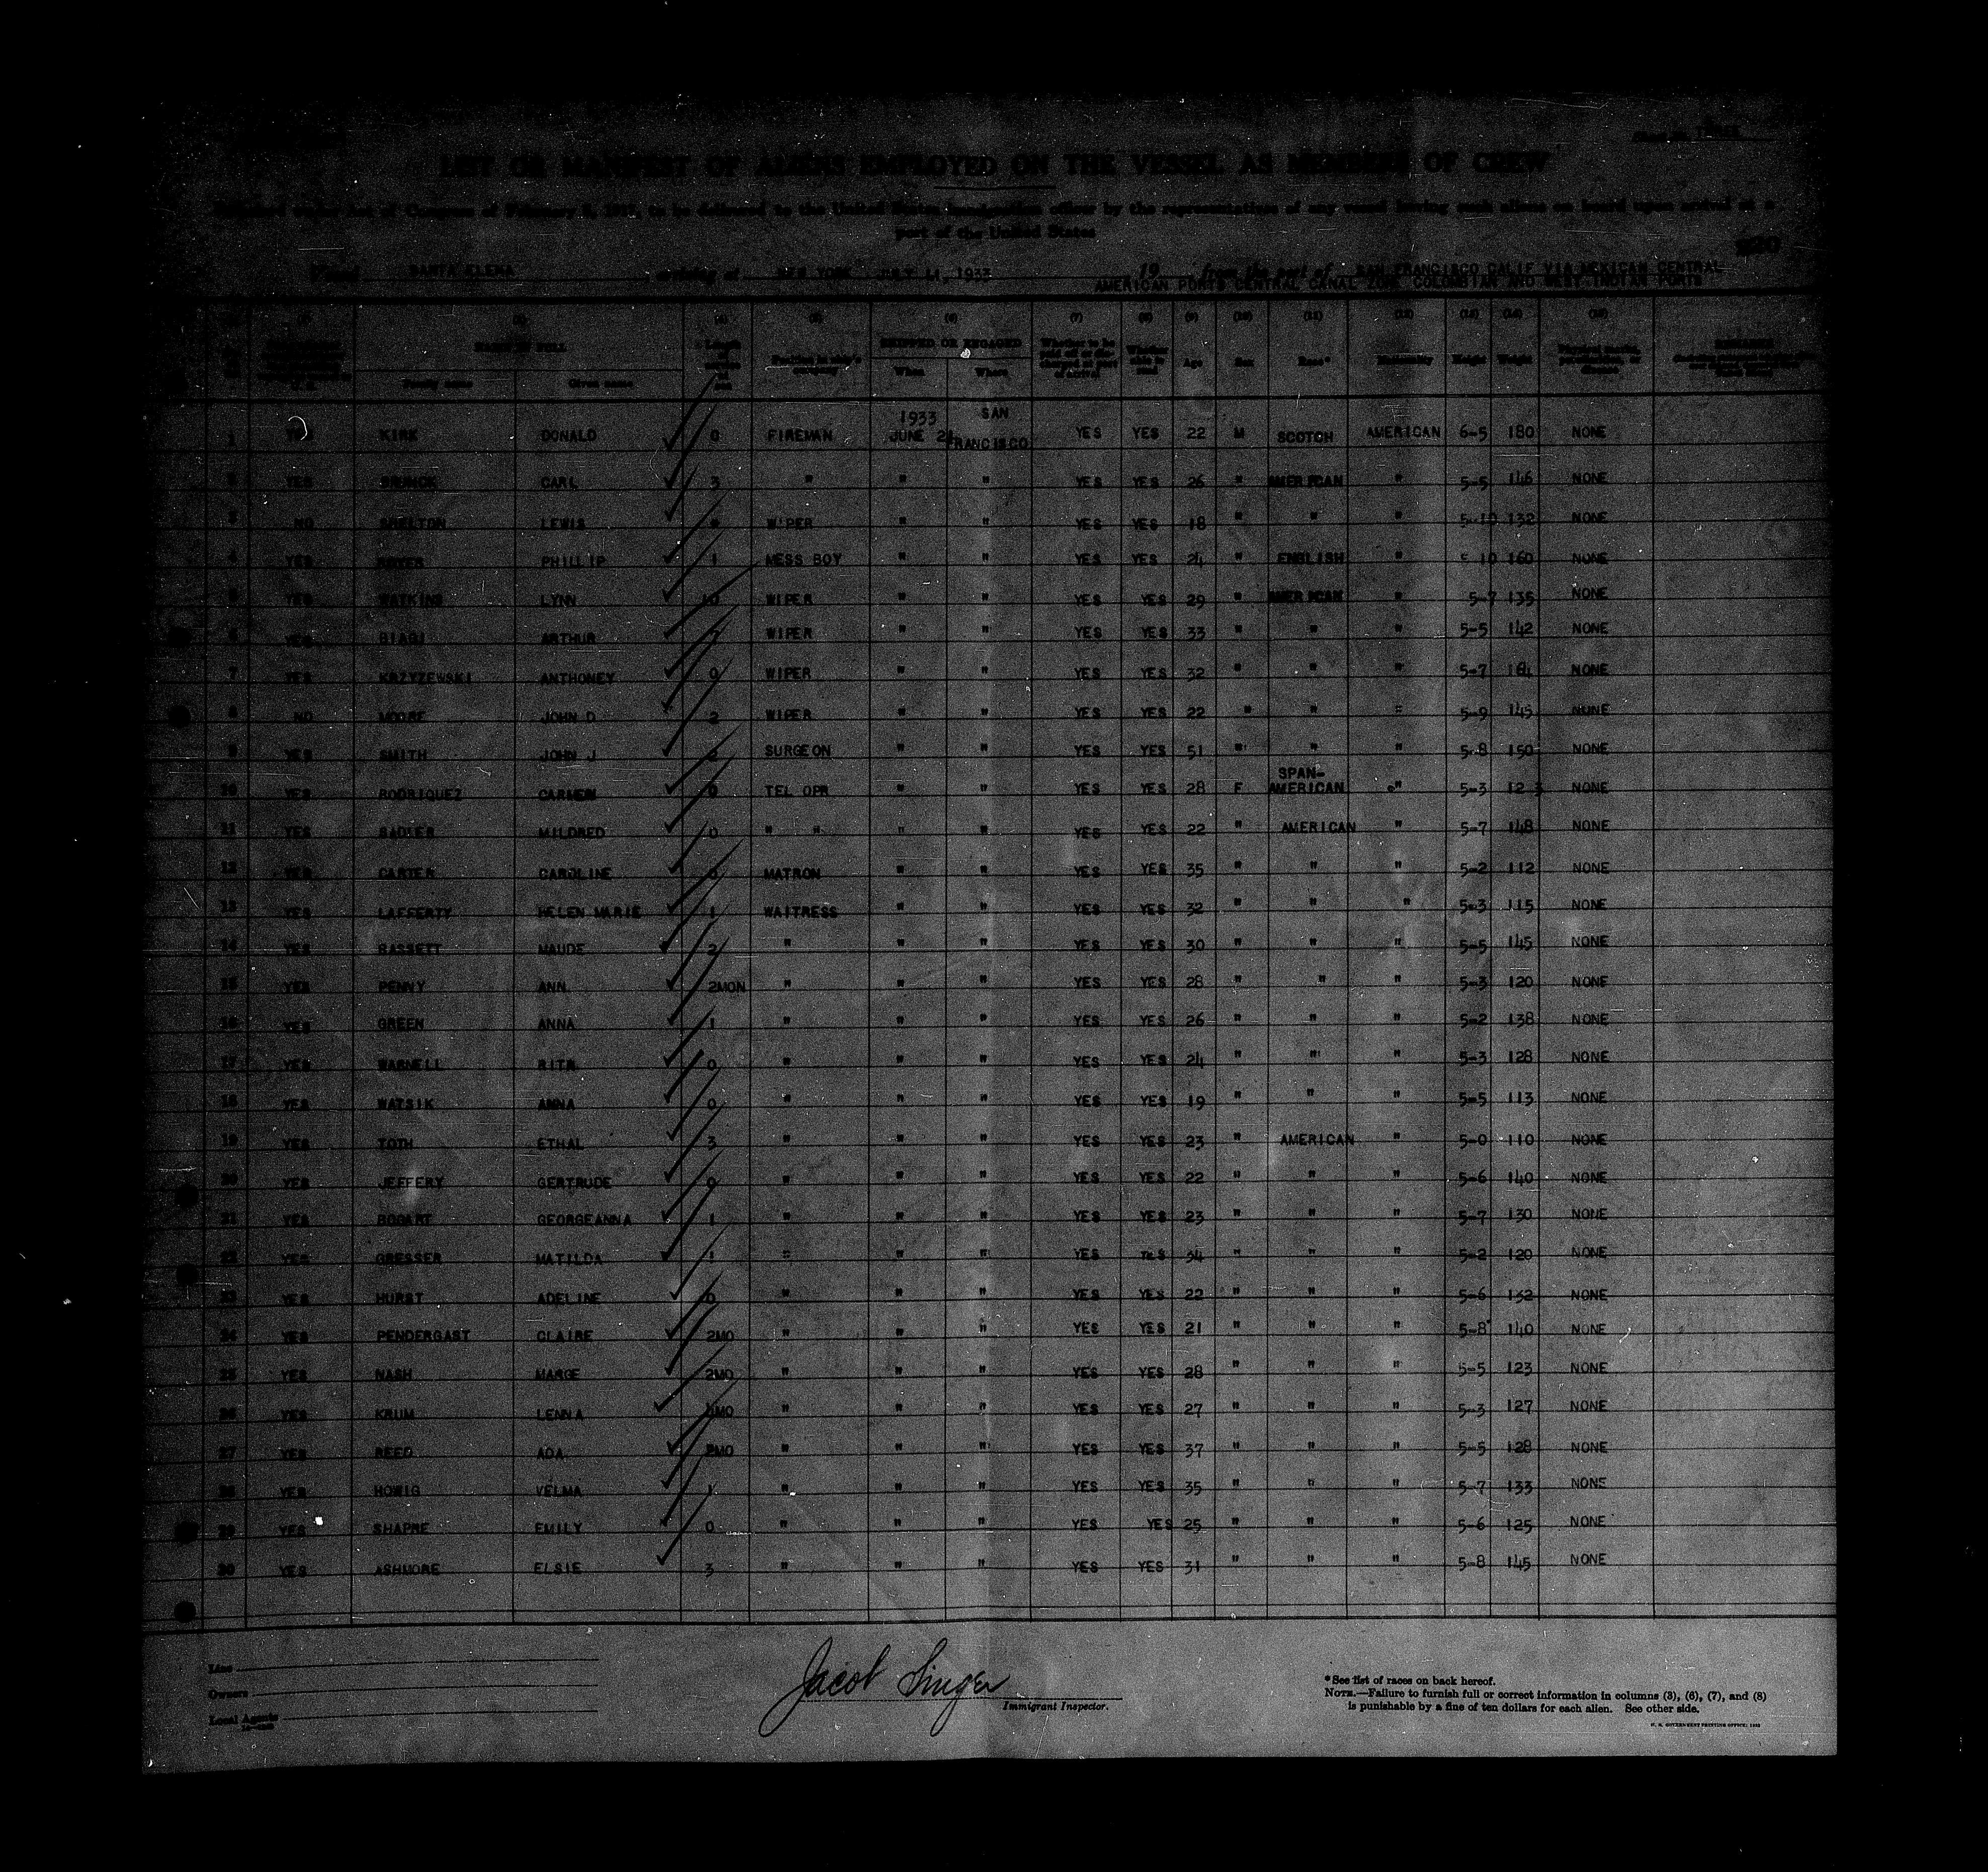 LIST OR MANIFEST OF ALIENS EMPLOYED ON THE VESSEL AS MEMBERS OF CREW
Required under Act of Congress of February 5, 1917, to be delivered to the United States immigration officer by the representatives of any vessel having such aliens on board upon arrival at a
port of the United States
Vessel SANTA ELENA arriving at NEW YORK JULY 11, 1933 19 from the port of SAN FRANCISCO CALIF VIA MEXICAN CENTRAL
AMERICAN PORTS CENTRAL CANAL ZONE COLOMBIAN AND WEST INDIAN PORTS
(3) (4) (5) (6) (7) (8) (9) (10) (11) (12) (13) (14) (15)
NAME IN FULL SHIPPED OR ENGAGED
Family name Given name Length of service at sea Position in ship's company When Where Whether to be paid off or discharged at port of arrival Whether able to read Age Sex Race* Nationality Height Weight Physical marks, peculiarities, or disease REMARKS
1933 SAN
1 YES KIRK DONALD 0 FIREMAN JUNE 24 FRANCISCO YES YES 22 M SCOTCH AMERICAN 6-5 180 NONE
2 YES CARL 3 " " " YES YES 26 " AMERICAN " 5-5 146 NONE
3 NO SHELTON LEWIS " WIPER " " YES YES 18 " " " 5-10 132 NONE
4 YES PHILLIP 1 MESS BOY " " YES YES 24 " ENGLISH " 5-10 160 NONE
5 YES WATKINS LYNN 10 WIPER " " YES YES 29 " AMERICAN " 5-7 135 NONE
6 YES BIAGI ARTHUR 7 WIPER " " YES YES 33 " " " 5-5 142 NONE
7 YES KRZYZEWSKI ANTHONEY 0 WIPER " " YES YES 32 " " " 5-7 184 NONE
8 NO MOORE JOHN D 2 WIPER " " YES YES 22 " " " 5-9 145 NONE
9 YES SMITH JOHN J 2 SURGEON " " YES YES 51 " " " 5-8 150 NONE
SPAN-
10 YES RODRIQUEZ CARMEN 0 TEL OPR " " YES YES 28 F AMERICAN " 5-3 123 NONE
11 YES SADLER MILDRED 0 " " " " YES YES 22 " AMERICAN " 5-7 148 NONE
12 YES CARTER CAROLINE 0 MATRON " " YES YES 35 " " " 5-2 112 NONE
13 YES LAFFERTY HELEN MARIE 1 WAITRESS " " YES YES 32 " " " 5-3 115 NONE
14 YES BASSETT MAUDE 2 " " " YES YES 30 " " " 5-5 145 NONE
15 YES PENNY ANN 2MON " " " YES YES 28 " " " 5-3 120 NONE
16 YES GREEN ANNA 1 " " " YES YES 26 " " " 5-2 138 NONE
17 YES WARNELL RITA 0 " " " YES YES 24 " " " 5-3 128 NONE
18 YES WATSIK ANNA 0 " " " YES YES 19 " " " 5-5 113 NONE
19 YES TOTH ETHAL 3 " " " YES YES 23 " AMERICAN " 5-0 110 NONE
20 YES JEFFERY GERTRUDE 0 " " " YES YES 22 " " " 5-6 140 NONE
21 YES BOGART GEORGEANNA 1 " " " YES YES 23 " " " 5-7 130 NONE
22 YES GRESSER MATILDA 1 " " " YES YES 34 " " " 5-2 120 NONE
23 YES HURST ADELINE 0 " " " YES YES 22 " " " 5-6 132 NONE
24 YES PENDERGAST CLAIRE 2MO " " " YES YES 21 " " " 5-8 140 NONE
25 YES NASH MARGE 2MO " " " YES YES 28 " " " 5-5 123 NONE
26 YES KRUM LENNA " " " YES YES 27 " " " 5-3 127 NONE
27 YES REED ADA 2MO " " " YES YES 37 " " " 5-5 128 NONE
28 YES HOWIG VELMA 1 " " " YES YES 35 " " " 5-7 133 NONE
29 YES SHAPRE EMILY 0 " " " YES YES 25 " " " 5-6 125 NONE
30 YES ASHMORE ELSIE 3 " " " YES YES 31 " " " 5-8 145 NONE
Line
Owners
Local Agents
Jacob Singer
Immigrant Inspector.
*See list of races on back hereof.
NOTE.—Failure to furnish full or correct information in columns (3), (6), (7), and (8)
is punishable by a fine of ten dollars for each alien. See other side.
U. S. GOVERNMENT PRINTING OFFICE: 1932